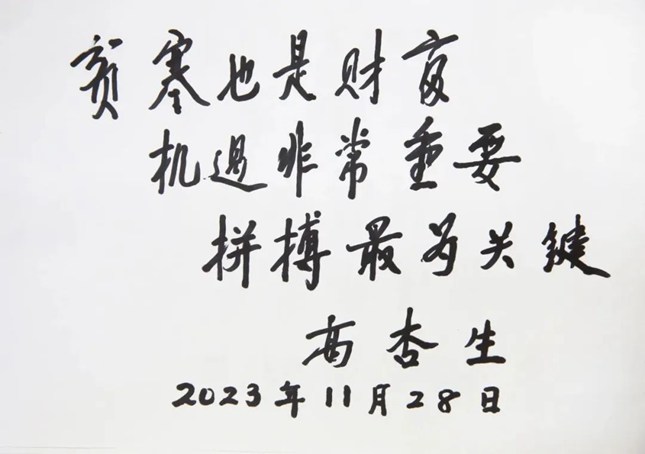 贫寒也是财富
机遇非常重要
拼搏最为关键
高杏生
2023年11月28日